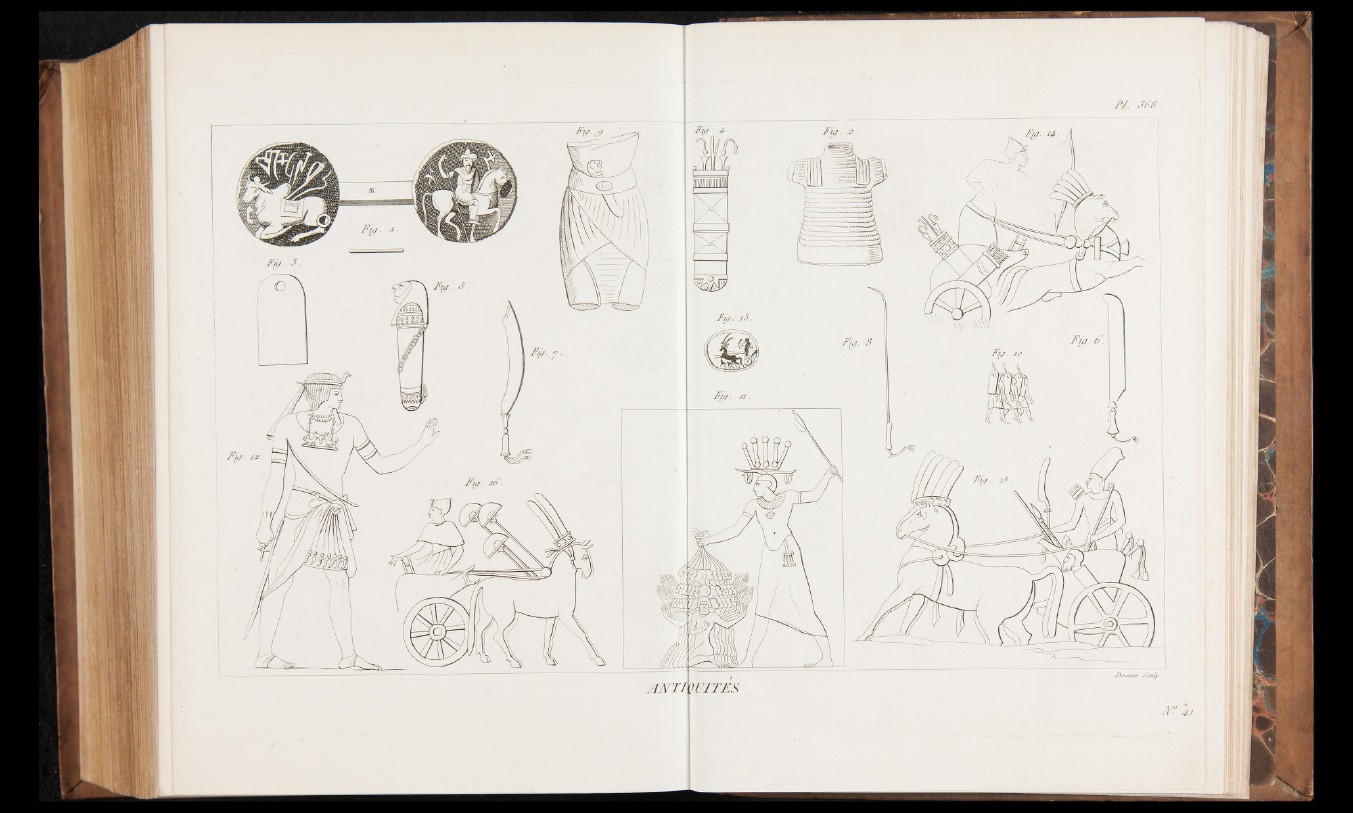 Pl. 368
Fig. 9
Fig. 4
Fig. 2
Fig. 14.
Fig. 1
Fig. 3.
Fig. 5
Fig. 7.
Fig. 13.
Fig. 8
Fig. 10.
Fig. 6.
Fig. 11.
Fig. 12
Fig. 16
Fig. 15.
ANTIQUITÉS
Sculp
N.º 41